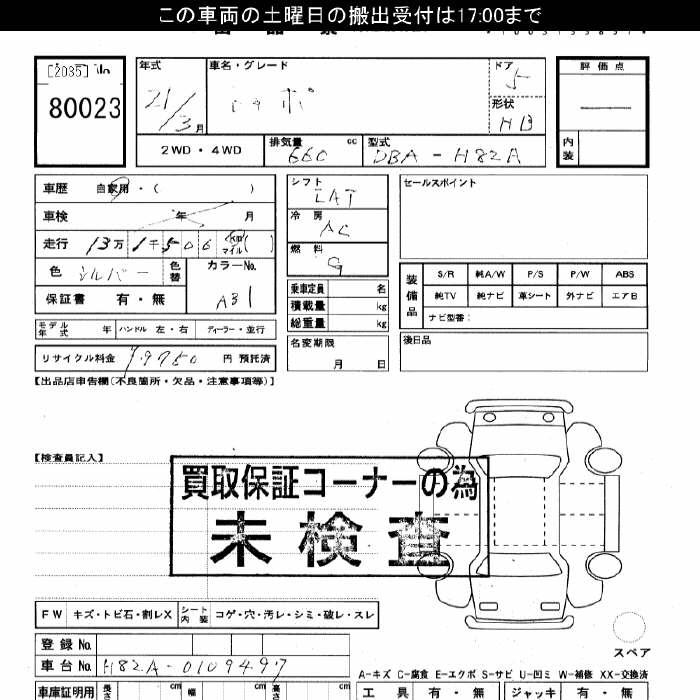 この車両の土曜日の搬出受付は17:00まで
[2035] No
80023
年式 21/3月
車名・グレード
ドア 5
形状 HB
評価点
内装
2WD・4WD
排気量 660 cc
型式 DBA-H82A
車歴 自家用・( )
車検 年 月
走行 13万1千506 km マイル( )
色 シルバー 色替
カラーNo. A31
保証書 有・無
モデル年式 年 ハンドル 左・右 ディーラー・並行
リサイクル料金 円 預託済
シフト
冷房 AC
燃料 G
乗車定員 名
積載量 kg
総重量 kg
名変期限 月 日
セールスポイント
装備品
S/R 純A/W P/S P/W ABS
純TV 純ナビ 革シート 外ナビ エアB
ナビ型番:
後日品
【出品店申告欄(不良箇所・欠品・注意事項等)】
【検査員記入】
買取保証コーナーの為
未検査
FW キズ・トビ石・割レX シート内装 コゲ・穴・汚レ・シミ・破レ・スレ
スペア
登録No.
車台No. H82A-0109497
A-キズ C-腐食 E-エクボ S-サビ U-凹ミ W-補修 XX-交換済
車庫証明用 長さ cm 幅 cm 高さ cm
工具 有・無 ジャッキ 有・無